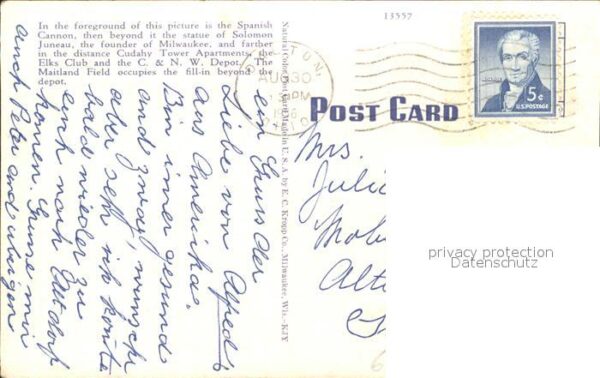 In the foreground of this picture is the Spanish
Cannon, then beyond it the statue of Solomon
Juneau, the founder of Milwaukee, and farther
in the distance Cudahy Tower Apartments, the
Elks Club and the C. & N. W. Depot. The
Maitland Field occupies the fill-in beyond the
depot.
13557
AUG 30
PM
POST CARD
5¢
U.S. POSTAGE
Natural Color Post Card Made in U. S. A. by E. C. Kropp Co., Milwaukee, Wis.-KJY
ein Gruss der
Liebe von Alfred
aus Amerika.
Bin immer gesund
und
aber sehr ich könnte
bald wieder zu
euch nach Altdorf
kommen. Grüsse mir
auch Peter und
Mrs.
Juli
Alt
privacy protection
Datenschutz